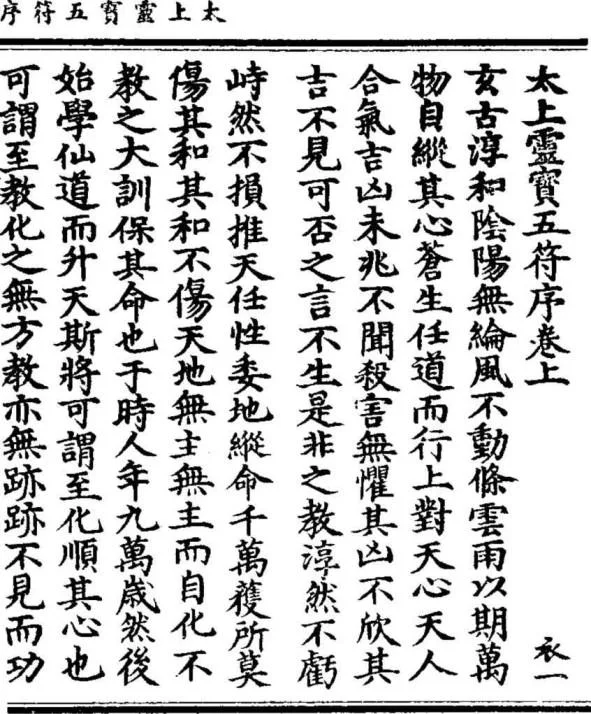 太上靈寶五符序
太上靈寶五符序卷上 衣一
玄古淳和陰陽無綸風不動條雲雨以期萬
物自縱其心蒼生任道而行上對天心天人
合氣吉凶未兆不聞殺害無懼其凶不欣其
吉不見可否之言不生是非之教淳然不虧
峙然不損推天任性委地縱命千萬穫所莫
傷其和其和不傷天地無主無主而自化不
教之大訓保其命也于時人年九萬歲然後
始學仙道而升天斯將可謂至化順其心也
可謂至教化之無方教亦無跡跡不見而功